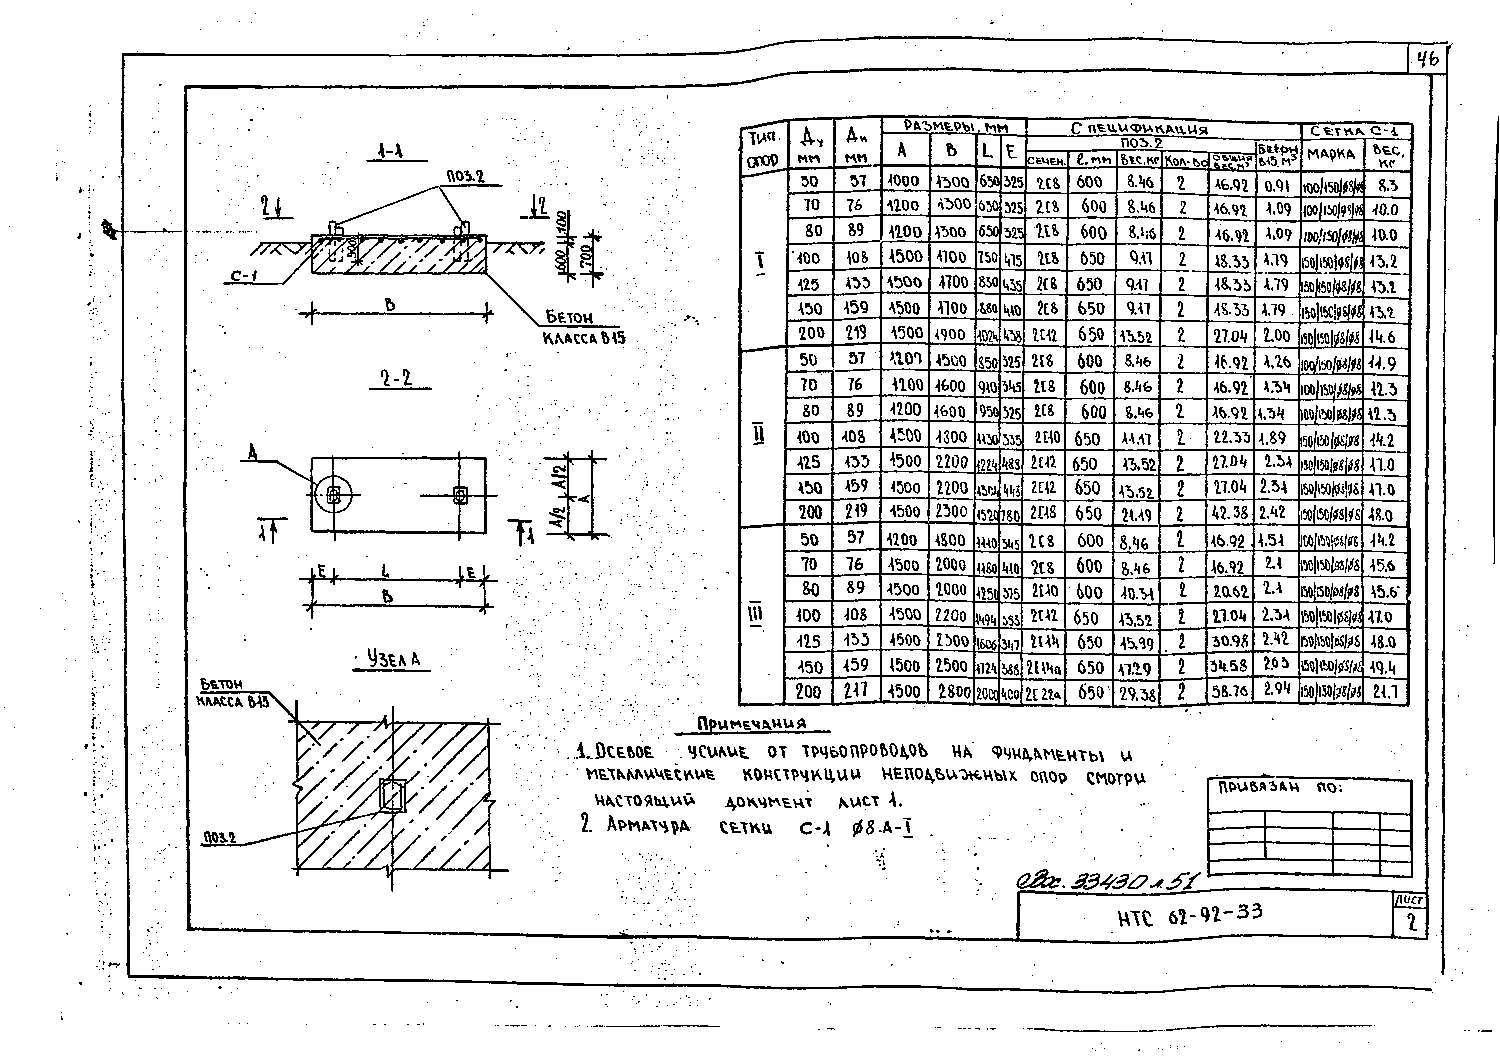 46
1-1
ПОЗ.2
2
2
100
600
700
300
С-1
В
БЕТОН
КЛАССА В15
2-2
А
А/2
А/2
А
1
1
Е
L
Е
В
УЗЕЛ А
БЕТОН
КЛАССА В15
ПОЗ.2
ТИП ОПОР
Ду мм
Дн мм
РАЗМЕРЫ, ММ
СПЕЦИФИКАЦИЯ
СЕТКА С-1
А В L Е
ПОЗ.2
БЕТОН В15, м³
МАРКА
ВЕС, КГ
СЕЧЕН. ℓ, мм ВЕС, КГ КОЛ-ВО
I
50 57 1000 1300 650 325 2С8 600 8.46 2 16.92 0.91 100/150/ø8/ø8 8.3
70 76 1200 1300 650 325 2С8 600 8.46 2 16.92 1.09 100/150/ø8/ø8 10.0
80 89 1200 1300 650 325 2С8 600 8.46 2 16.92 1.09 100/150/ø8/ø8 10.0
100 108 1500 1700 750 475 2С8 650 9.17 2 18.33 1.79 150/150/ø8/ø8 13.2
125 133 1500 1700 830 435 2С8 650 9.17 2 18.33 1.79 150/150/ø8/ø8 13.2
150 159 1500 1700 880 410 2С8 650 9.17 2 18.33 1.79 150/150/ø8/ø8 13.2
200 219 1500 1900 1024 438 2С12 650 13.52 2 27.04 2.00 150/150/ø8/ø8 14.6
II
50 57 1200 1500 850 325 2С8 600 8.46 2 16.92 1.26 100/150/ø8/ø8 11.9
70 76 1200 1600 910 345 2С8 600 8.46 2 16.92 1.34 100/150/ø8/ø8 12.3
80 89 1200 1600 950 325 2С8 600 8.46 2 16.92 1.34 100/150/ø8/ø8 12.3
100 108 1500 1800 1130 335 2С10 650 11.17 2 22.33 1.89 150/150/ø8/ø8 14.2
125 133 1500 2200 1224 483 2С12 650 13.52 2 27.04 2.31 150/150/ø8/ø8 17.0
150 159 1500 2200 443 2С12 650 13.52 2 27.04 2.31 150/150/ø8/ø8 17.0
200 219 1500 2300 1520 780 2С18 650 21.19 2 42.38 2.42 150/150/ø8/ø8 18.0
III
50 57 1200 1800 1110 345 2С8 600 8.46 2 16.92 1.51 100/150/ø8/ø8 14.2
70 76 1500 2000 1180 410 2С8 600 8.46 2 16.92 2.1 150/150/ø8/ø8 15.6
80 89 1500 2000 1250 375 2С10 600 10.31 2 20.62 2.1 150/150/ø8/ø8 15.6
100 108 1500 2200 1494 353 2С12 650 13.52 2 27.04 2.31 150/150/ø8/ø8 17.0
125 133 1500 2300 1606 347 2С14 650 15.99 2 30.98 2.42 150/150/ø8/ø8 18.0
150 159 1500 2500 1724 388 2С14а 650 17.29 2 34.58 2.63 150/150/ø8/ø8 19.4
200 217 1500 2800 2000 400 2С22а 650 29.38 2 58.76 2.94 150/150/ø8/ø8 21.7
ПРИМЕЧАНИЯ
1. ОСЕВОЕ УСИЛИЕ ОТ ТРУБОПРОВОДОВ НА ФУНДАМЕНТЫ И
МЕТАЛЛИЧЕСКИЕ КОНСТРУКЦИИ НЕПОДВИЖНЫХ ОПОР СМОТРИ
НАСТОЯЩИЙ ДОКУМЕНТ ЛИСТ 1.
2. АРМАТУРА СЕТКИ С-1 ø8.А-I
ПРИВЯЗАН ПО:
33430 л 51
НТС 62-92-33
ЛИСТ
2